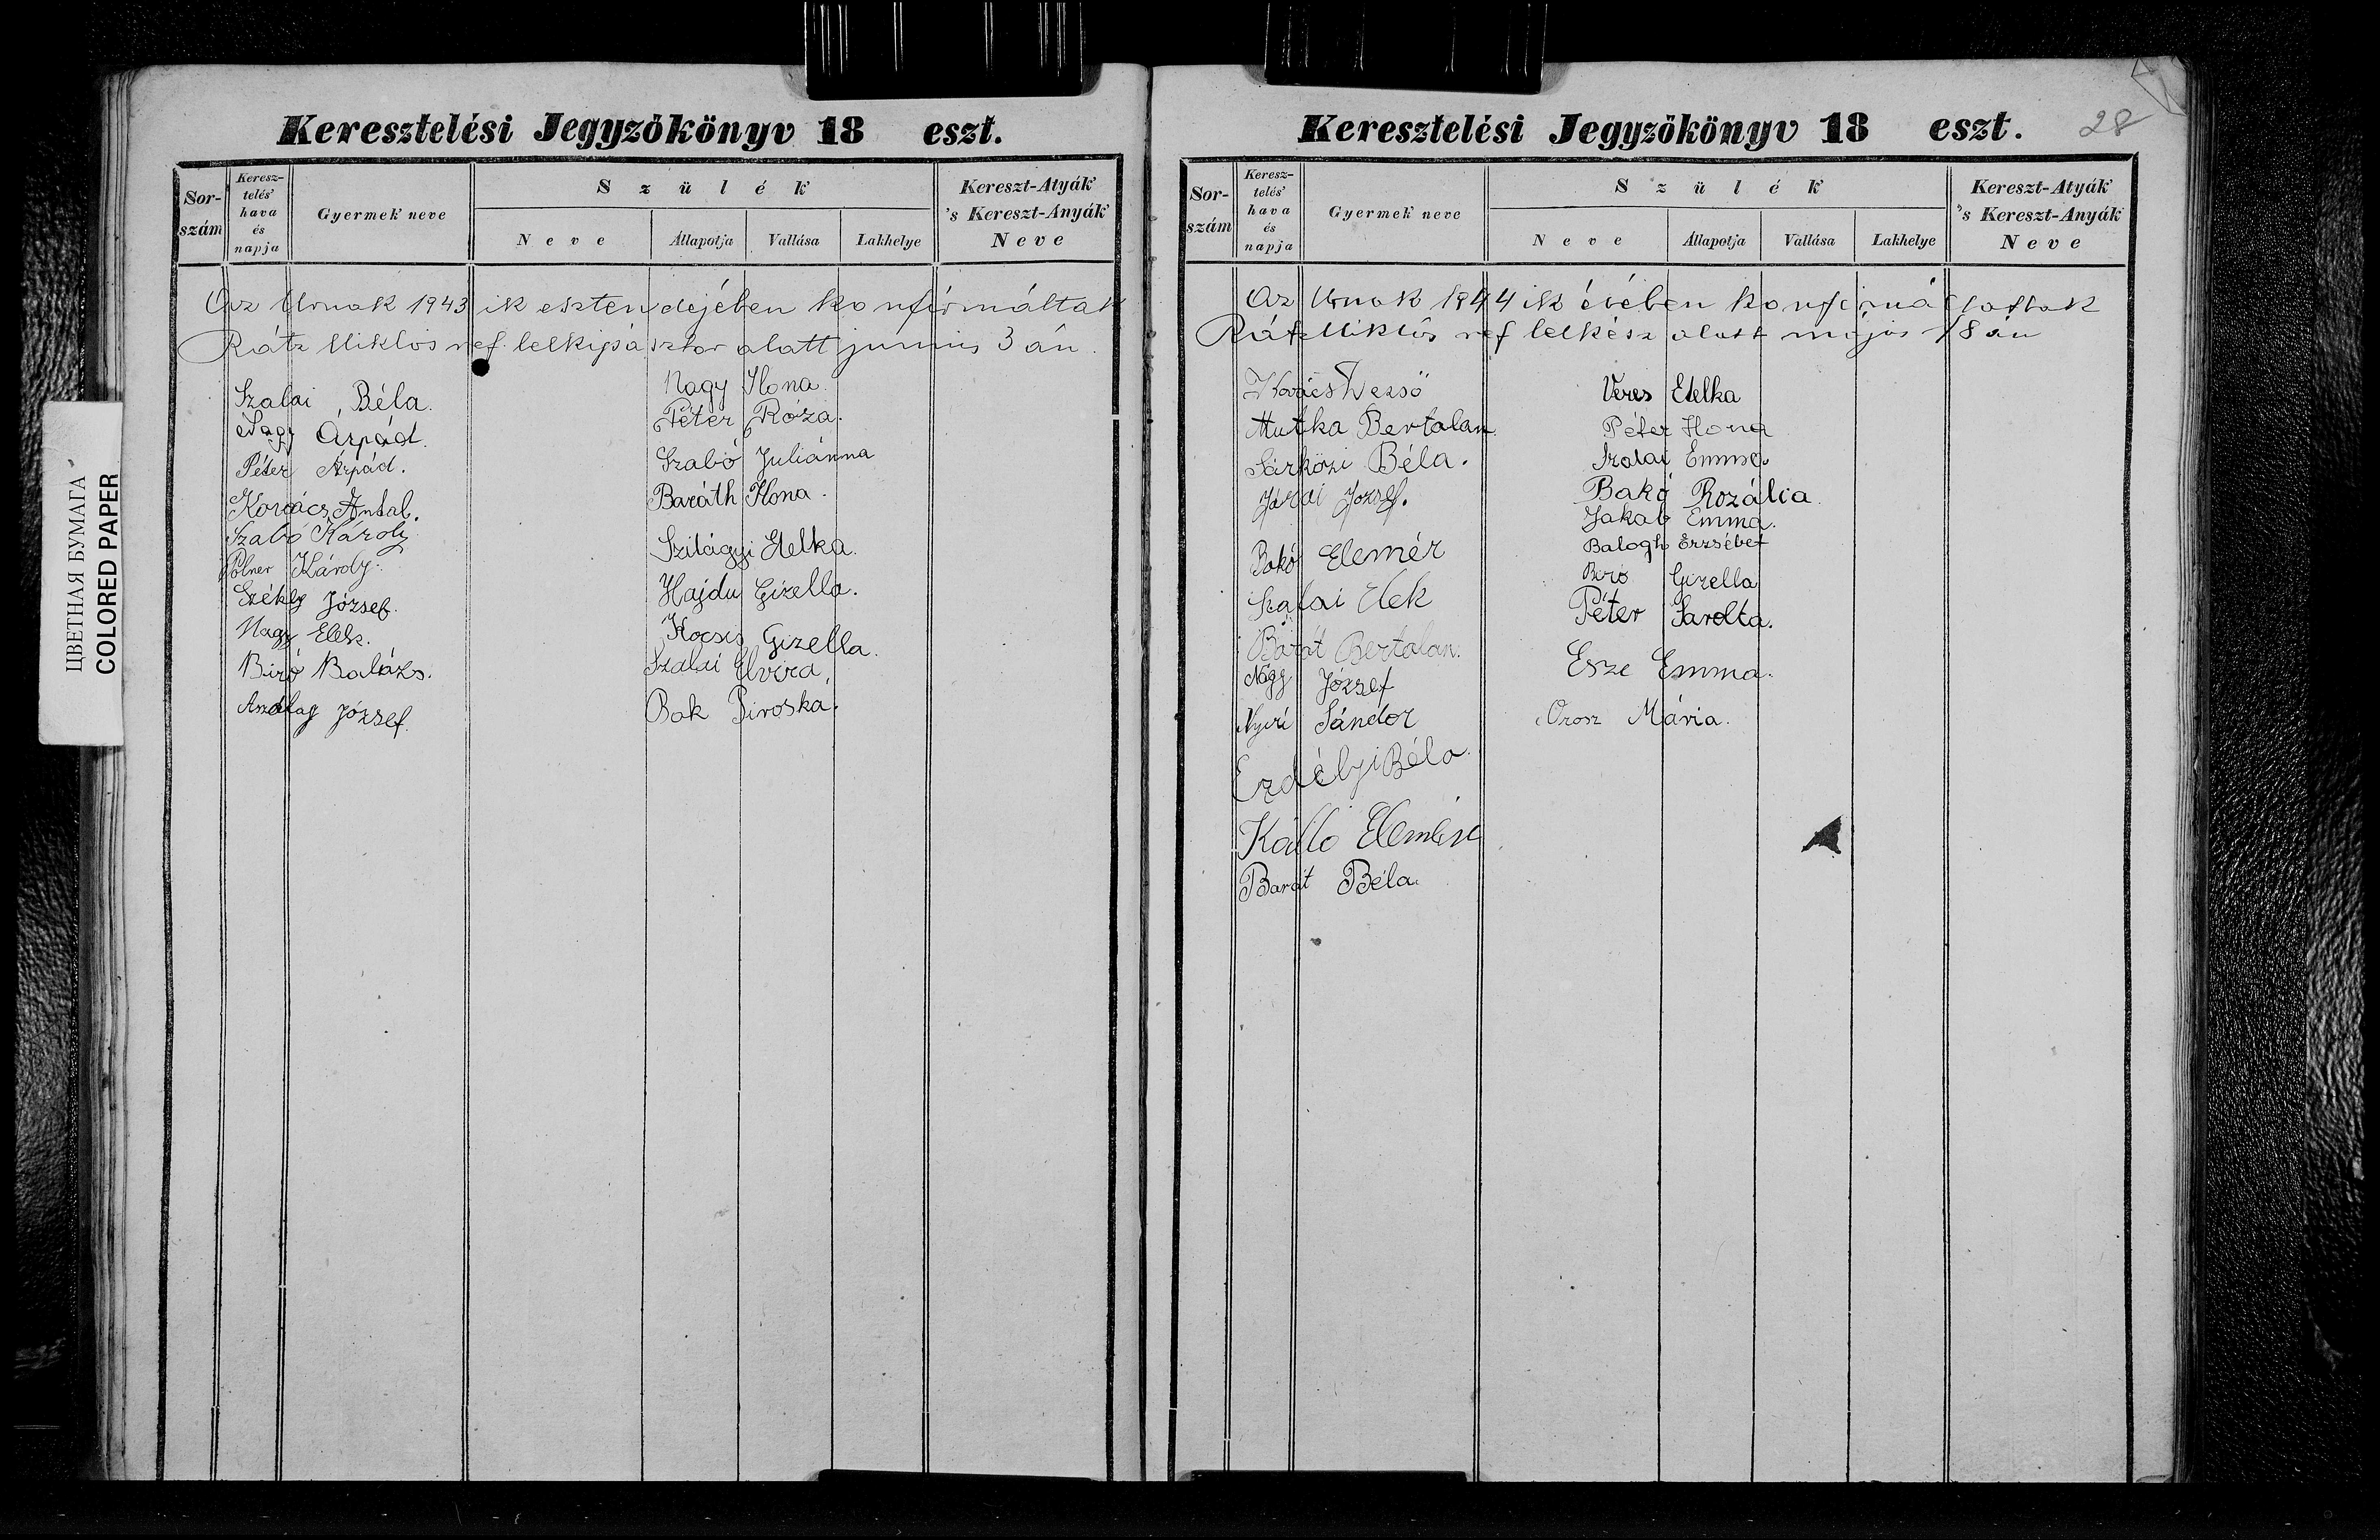 ЦВЕТНАЯ БУМАГА
COLORED PAPER
Keresztelési Jegyzökönyv 18 eszt.
Sor-szám
Keresz-telés' hava és napja
Gyermek neve
Szülék
Neve
Állapotja
Vallása
Lakhelye
Kereszt-Atyák 's Kereszt-Anyák Neve
Az Urnak 1943 ik esztendejében konfirmáltak
Rátz Miklós ref. lelkipásztor alatt junius 3 án.
Szalai Béla.
Nagy Árpád.
Péter Árpád.
Kovács Antal.
Szabó Károly
Pólner Károly.
Székely József.
Nagy Elek.
Biró Balázs.
József.
Nagy Ilona.
Péter Róza.
Szabó Juliánna
Baráth Ilona.
Szilágyi Etelka.
Hajdu Gizella.
Kocsis Gizella.
Szalai Elvira
Bak Piroska.
Keresztelési Jegyzökönyv 18 eszt.
28
Sor-szám
Keresz-telés' hava és napja
Gyermek neve
Szülék
Neve
Állapotja
Vallása
Lakhelye
Kereszt-Atyák 's Kereszt-Anyák Neve
Az Urnak 1944 ik évében konfirmáltattak
Rátz Miklós ref lelkész alatt május 18 án
Kovács Dezsö
Mutka Bertalan
Sárközi Béla.
József.
Bakó Elemér
Szalai Elek
Barát Bertalan.
Nagy József
Nyiri Sándor
Erdélyi Béla.
Kálló Elemér
Barát Béla.
Veres Etelka
Péter Ilona
Szalai Emma
Bakó Rozália.
Jakab Emma.
Balogh Erzsébet
Biró Gizella
Péter Sarolta.
Esze Emma.
Orosz Mária.